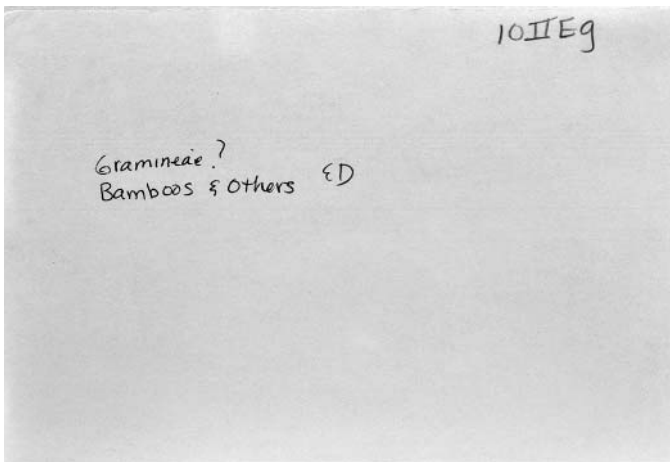 10IIEg
Gramineae?
Bamboos & Others &D